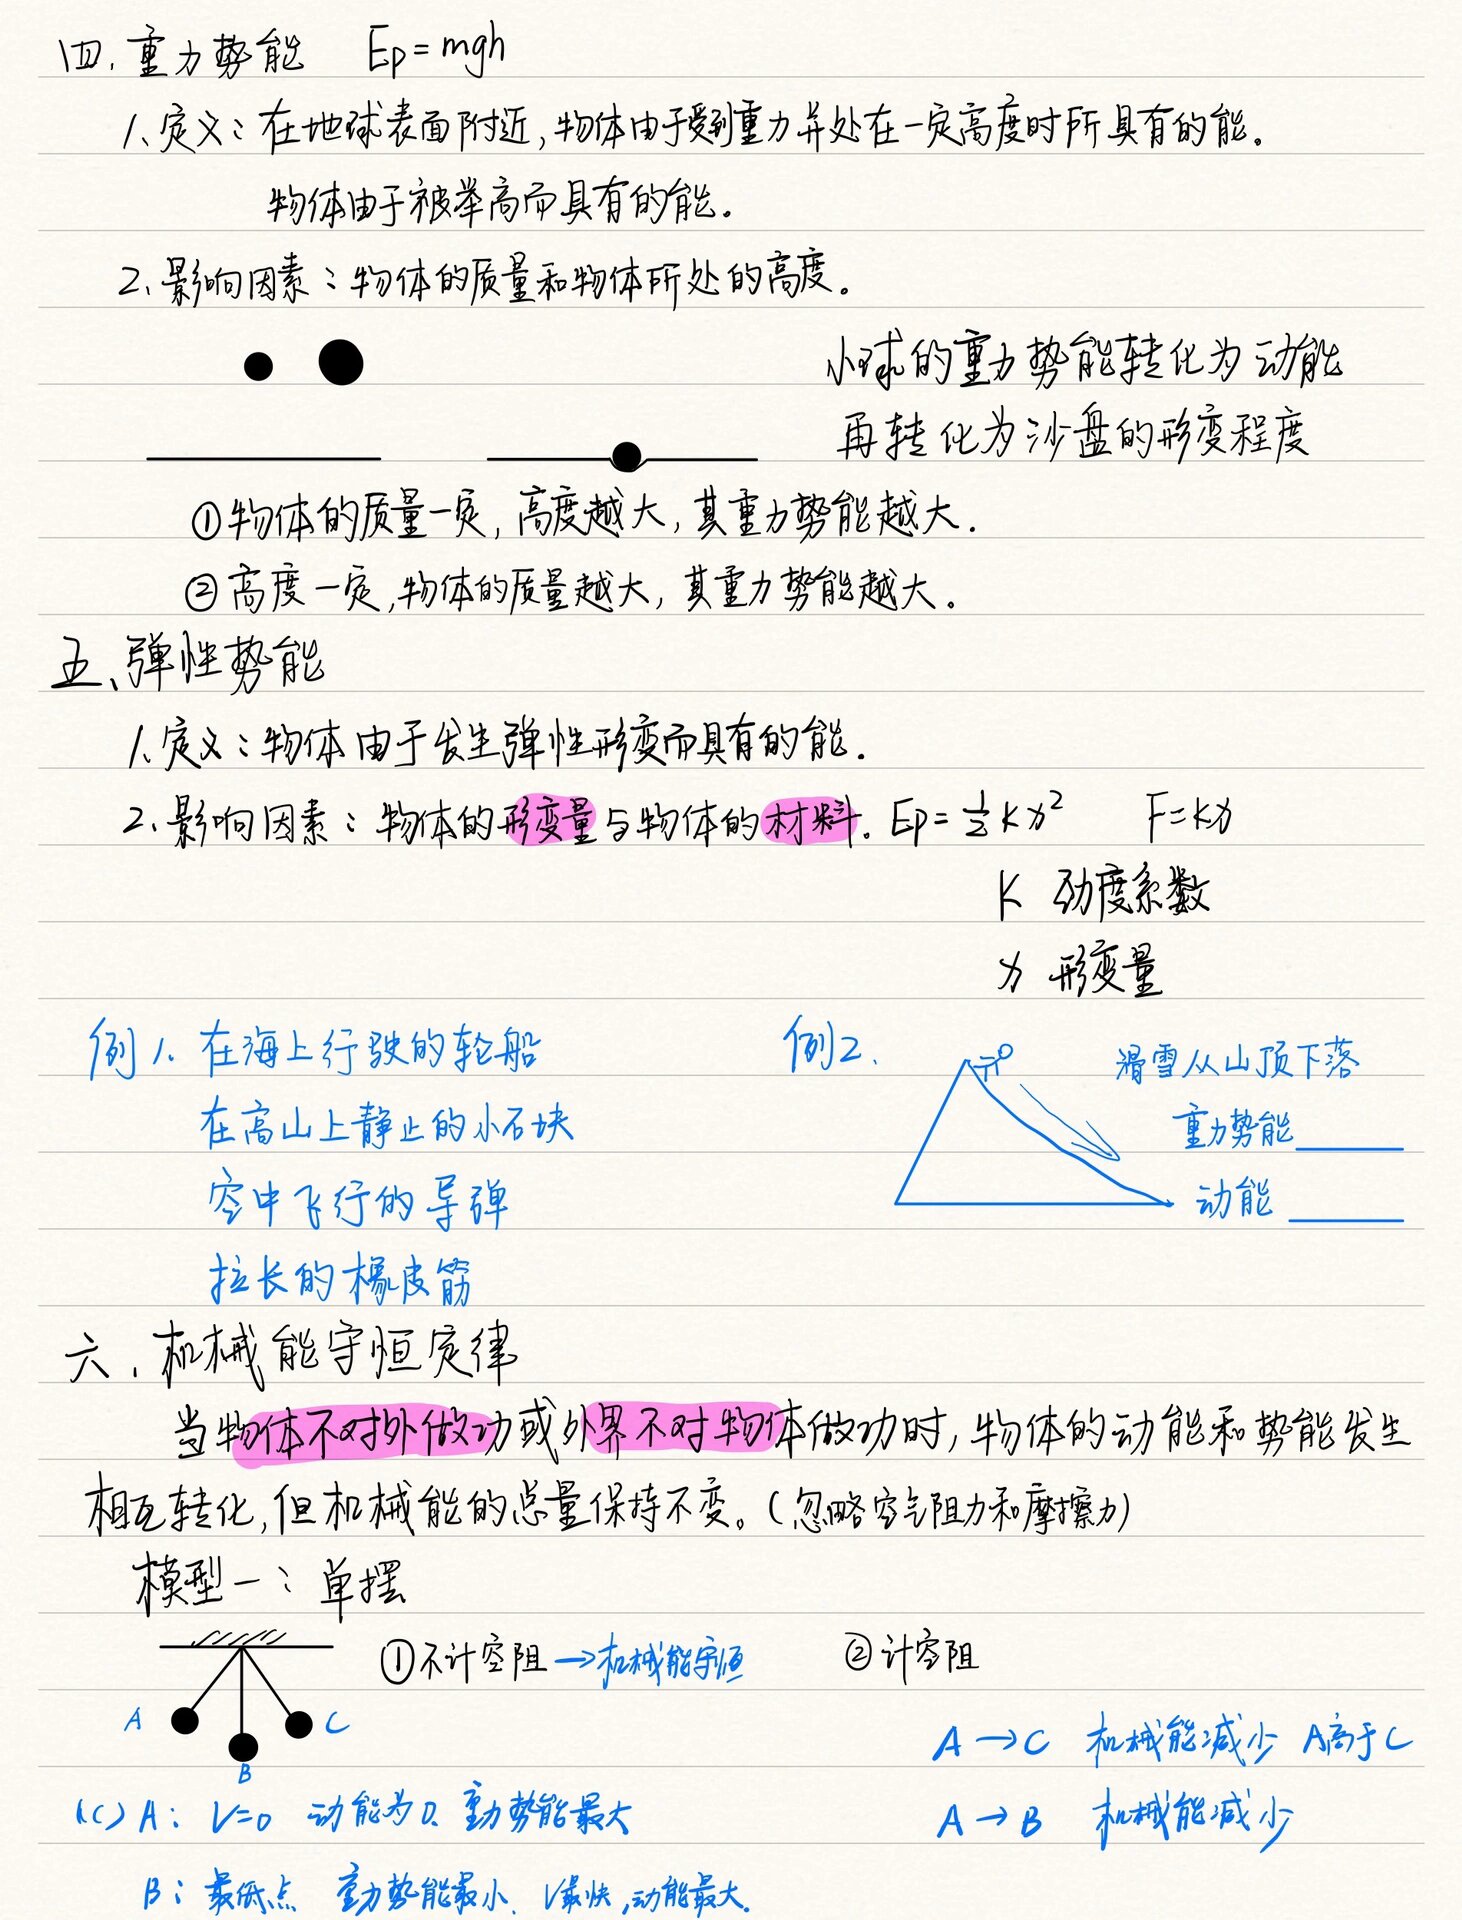 四、重力势能 Ep=mgh
1、定义：在地球表面附近,物体由于受到重力并处在一定高度时所具有的能。
物体由于被举高而具有的能。
2、影响因素：物体的质量和物体所处的高度。
小球的重力势能转化为动能
再转化为沙盘的形变程度
①物体的质量一定,高度越大,其重力势能越大.
②高度一定,物体的质量越大,其重力势能越大。
五、弹性势能
1、定义：物体由于发生弹性形变而具有的能.
2、影响因素：物体的形变量与物体的材料. Ep=½kx² F=kx
K 劲度系数
x 形变量
例1、在海上行驶的轮船
在高山上静止的小石块
空中飞行的导弹
拉长的橡皮筋
例2、
滑雪从山顶下落
重力势能______
动能______
六、机械能守恒定律
当物体不对外做功或外界不对物体做功时,物体的动能和势能发生
相互转化,但机械能的总量保持不变。(忽略空气阻力和摩擦力)
模型一：单摆
①不计空阻→机械能守恒 ②计空阻
A C
B
A→C 机械能减少 A高于C
A→B 机械能减少
(C) A: V=0 动能为0、重力势能最大
B: 最低点 重力势能最小、V最快,动能最大.